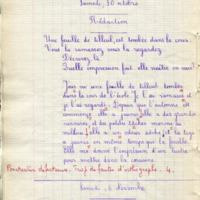 Samedi, 30 octobre
Rédaction
Une feuille de tilleul est tombée dans la cour.
Vous la ramassez, vous la regardez.
Décrivez-la.
Quelle impression fait-elle naître en vous?
J'ai vu une feuille de tilleul tombée
dans la cour de l'école. Je l'ai ramassée et
je l'ai regardée. Depuis que l'automne est
commencé, elle a jauni, elle a des grandes
nervures, et des petites taches marron au
milieu, elle a un odeur sèche, et la tige
a jauni en même temps que la feuille.
Elle me donne l'impression d'un lustre
pour mettre dans la cuisine.
trop de fautes d'orthographe. 4.
Samedi, 6 Novembre